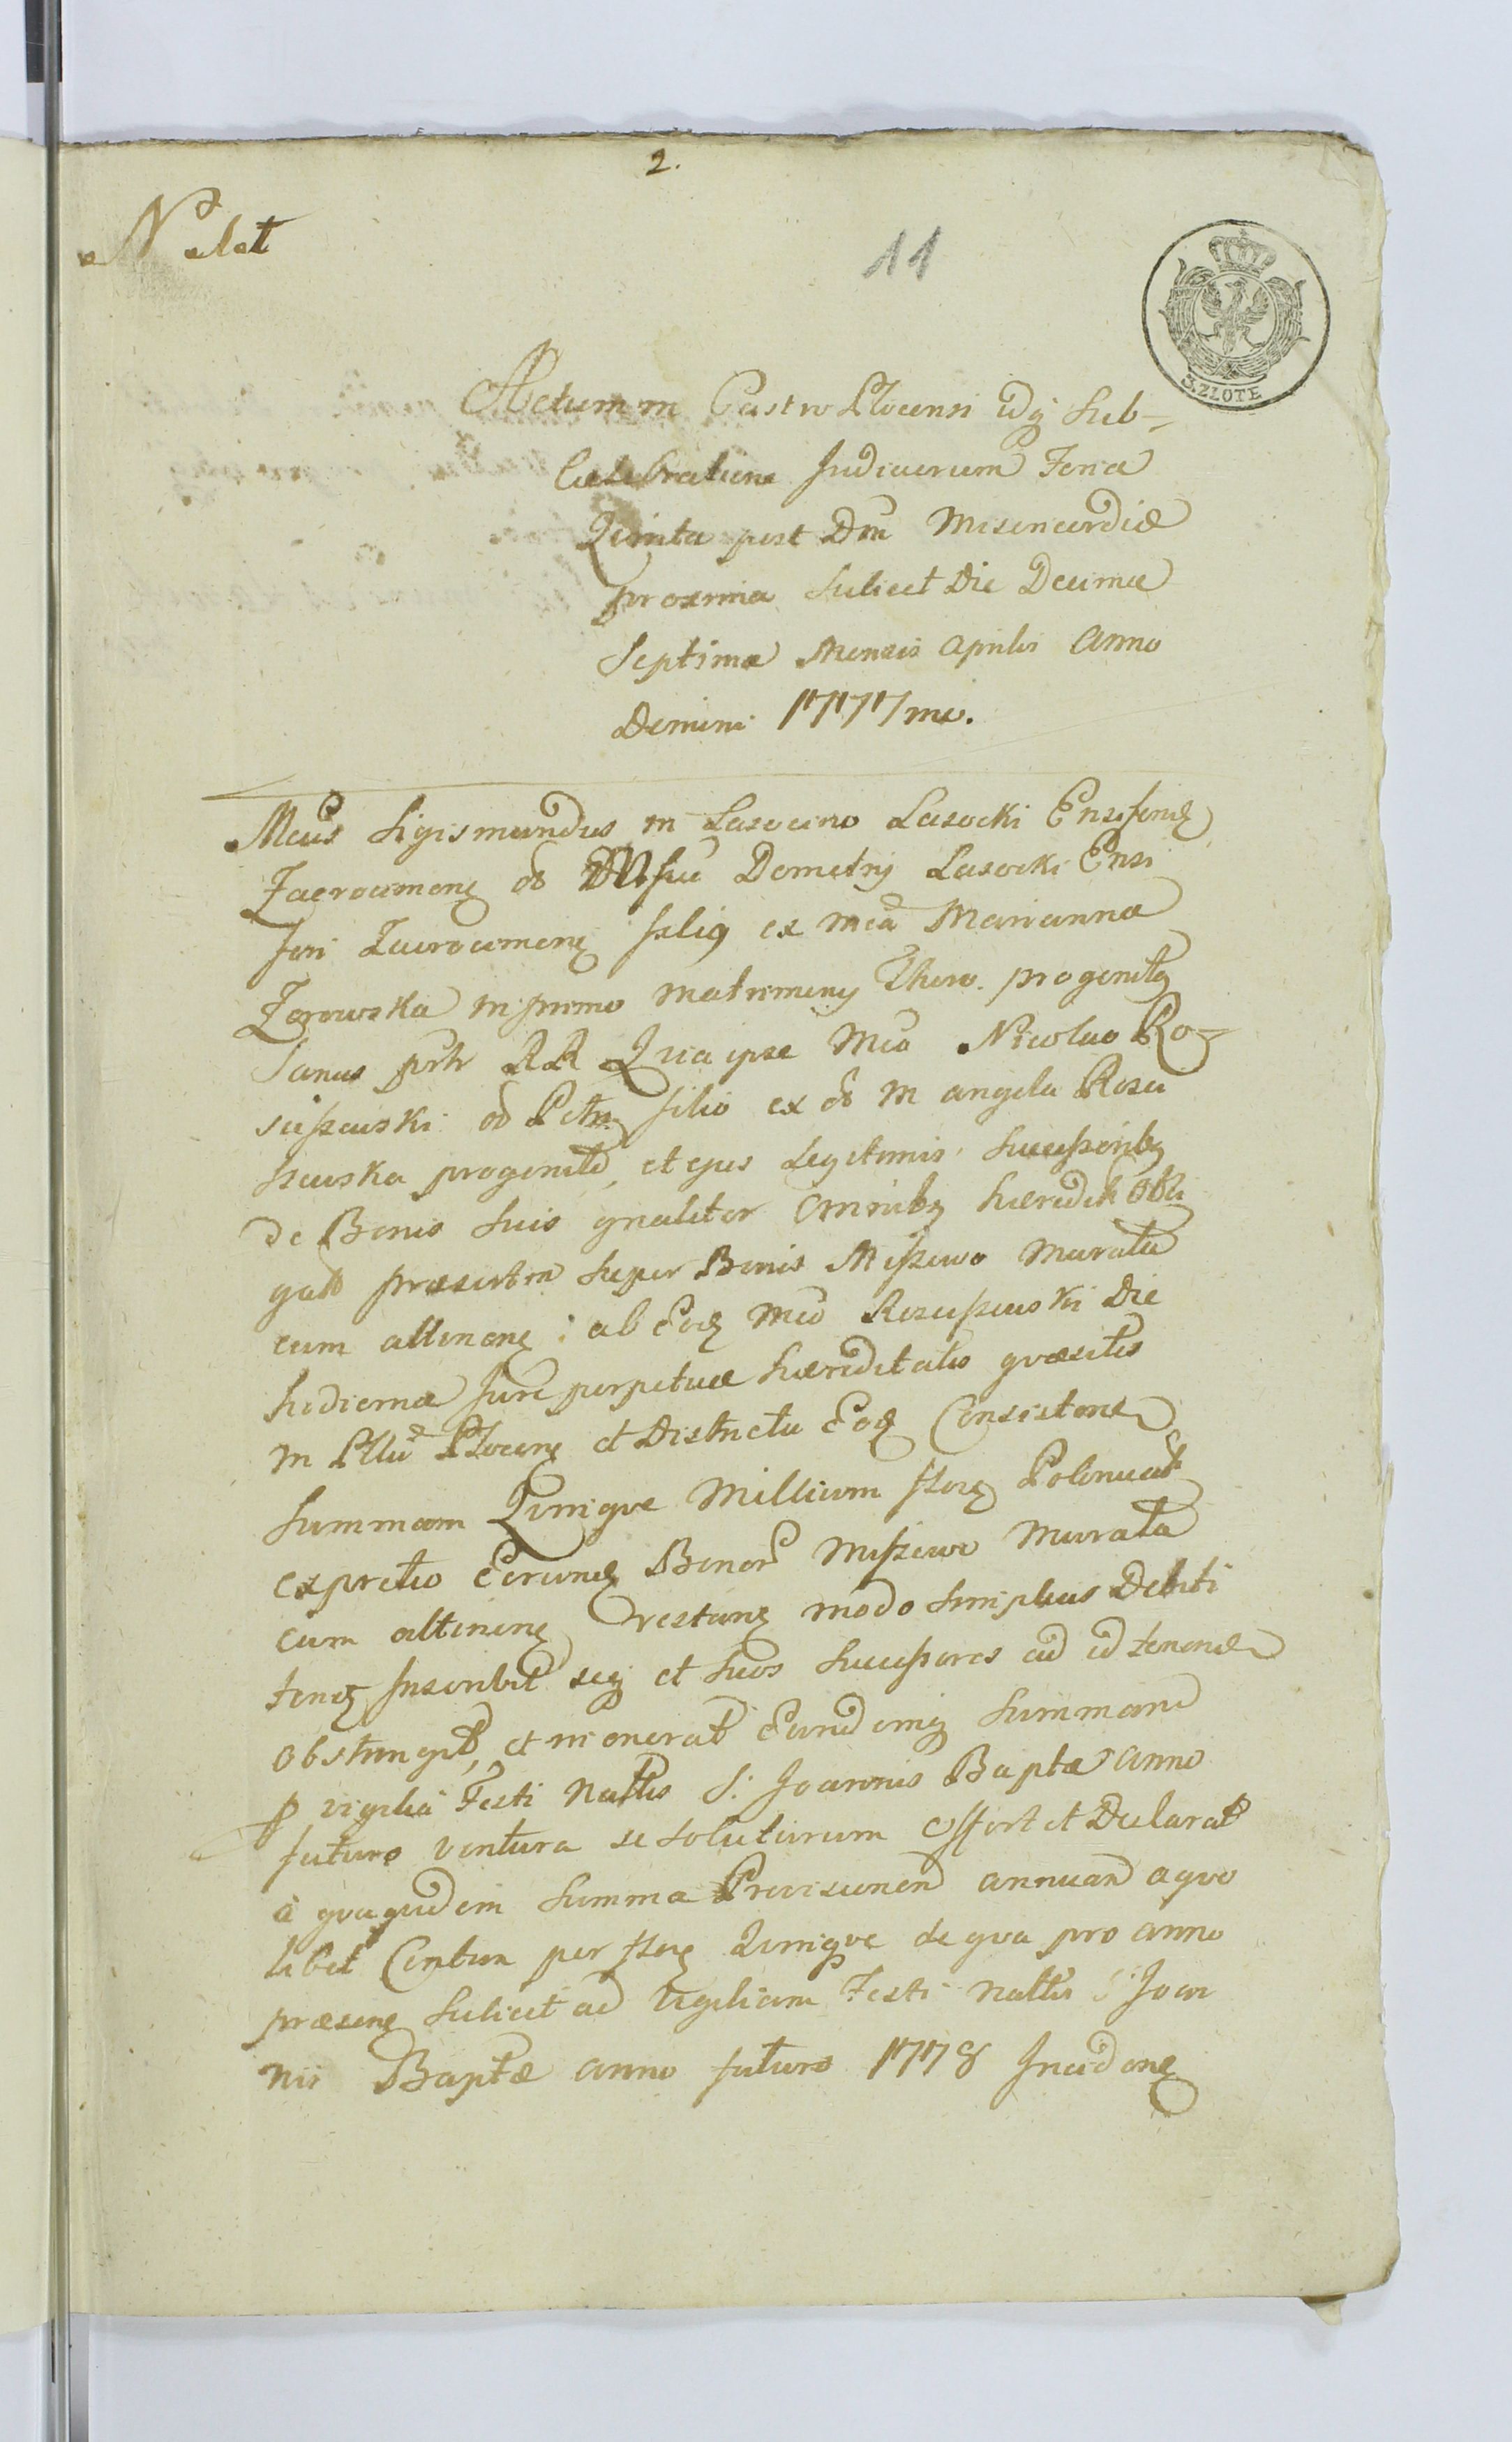 2.
11
3. ZŁOTE
Actum in Castro Plocensi idq sub
Celebratione Judiciorum Feria
Quinta post Dm Misericordiæ
proxima scilicet Die Decima
Septima Mensis Aprilis Anno
Domini 1777mo.
Mcus Sigismundus in Lasocino Lasocki Ensiferid
Zacrocimens Demetrij Lasocki Ensi
feri Zacrocimens filiq ex Mca Marianna
in primo matrimonij Thoro progenitq
Sanus RR Quia ipse Mco Nicolao Ro
sciszewski filio ex Angela Rosci
szewska progenito, et ejus Legitimis Successoribq
de Bonis suis gnaliter omnibq
præsertim super Bonis Miszewo Murata
cum attinen: ab Eod Mco Rosciszewski Die
hodierna Jure perpetuæ hæreditatis quæsitis
in Pltu Plocens et Districtu Eod Consisten
Summam Quinque Millium flor Polonical
ex pretio Eorund Bonor Miszewo Murata
cum attinen restan modo simplicis Debiti
Inscribit seq et suos Successores ad id tenend
obstringit, et inonerat Eandemq Summam
p vigilia Festi Nattis S: Joannis Baptæ Anno
futuro ventura se soluturum offert et Declarat
à quaquidem Summa Provisionem annuam a quo
libet Centum per flor Quinque de qua pro anno
præsen scilicet ad Vigiliam Festi Nattis S: Joan
nis Baptæ anno futuro 1778 Incidens